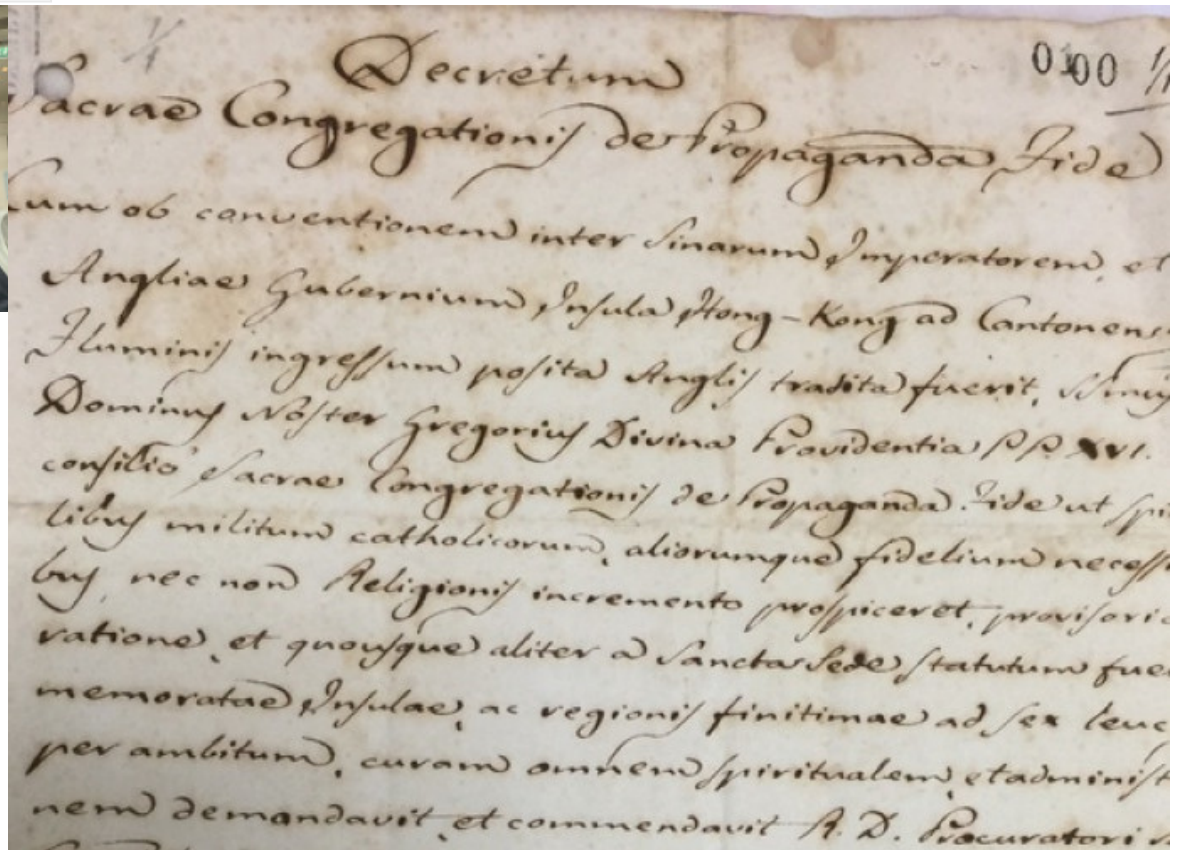 1/1
0100 1/1
Decretum
Sacrae Congregationis de Propaganda Fide
Cum ob conventionem inter Sinarum Imperatorem, et
Angliae Gubernium Insula Hong-Kong ad Cantonens
Fluminis ingressum posita Anglis tradita fuerit, SSmus
Dominus Noster Gregorius Divina Providentia PP. XVI.
consilio Sacrae Congregationis de Propaganda Fide ut spi
libus militum catholicorum, aliorumque fidelium necess
bus, nec non Religionis incremento prospiceret, provisori
ratione, et quousque aliter a Sancta Sede statutum fue
memoratae Insulae, ac regionis finitimae ad sex leuc
per ambitum, curam omnem spiritualem, et administ
nem demandavit, et commendavit R. D. Procuratori